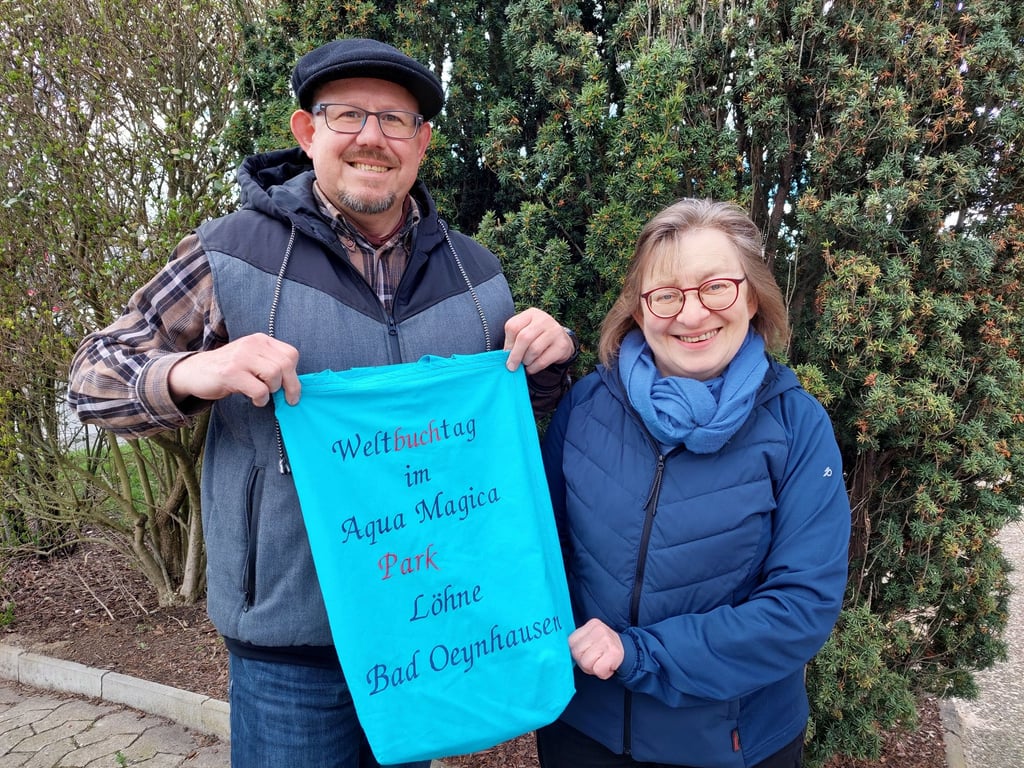 Weltbuchtag
im
Aqua Magica
Park
Löhne
Bad Oeynhausen